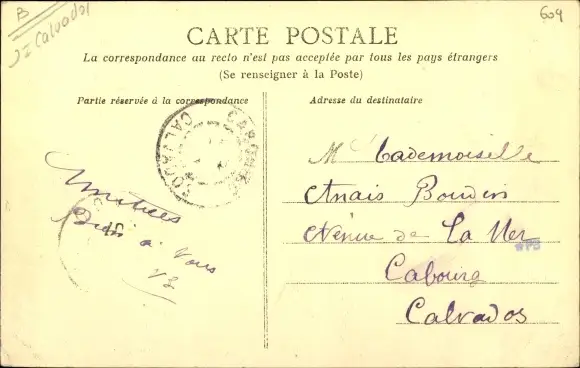 B
Calvados
609
CARTE POSTALE
La correspondance au recto n'est pas acceptée par tous les pays étrangers
(Se renseigner à la Poste)
Partie réservée à la correspondance
Adresse du destinataire
CALVADOS
Amitiées
Bien à Vous
M Mademoiselle
Anais Boudin
Avenue de La Mer
Cabourg
Calvados